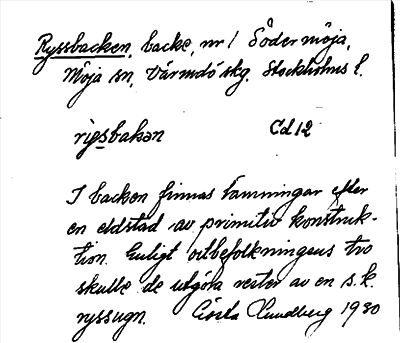 Ryssbacken, backe, nr 1 Södermöja,
Möja sn, Värmdö skg. Stockholms l.
rigsbakan Cd 12
I backen finnas lämningar efter
en eldstad av primitiv konstruk-
tion. Enligt ortbefolkningens tro
skulle de utgöra rester av en s.k.
ryssugn. Gösta Lundberg 1930